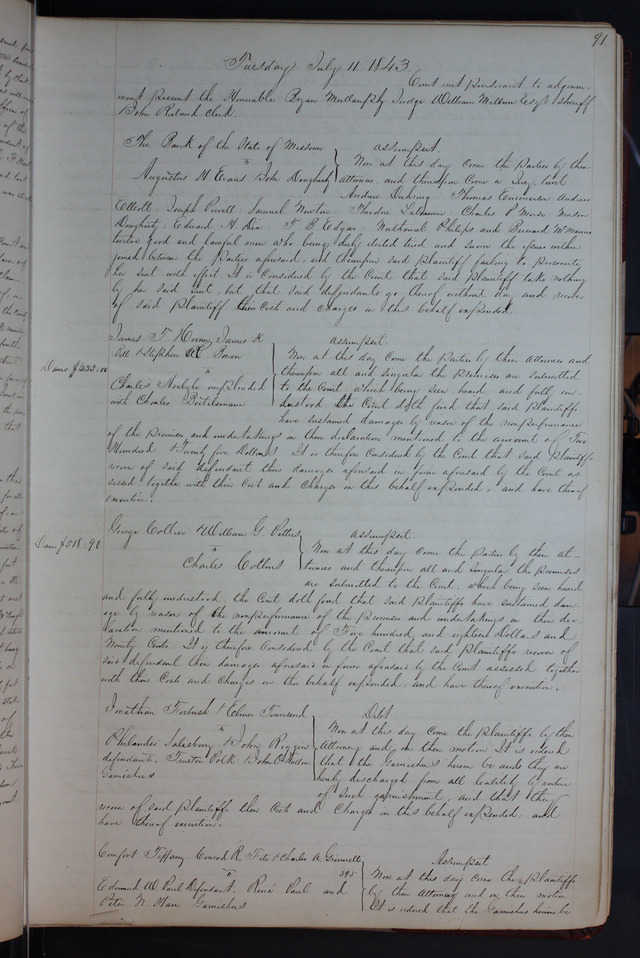 91
Tuesday July 11. 1843
Court met pursuant to adjourn
ment present the Honorable Bryan Mullanphy Judge William Milburn Esqr Sheriff
John Ruland Clerk.
The Bank of the State of Missouri
"
Augustus H Evans & John Dougherty
assumpsit.
Now at this day come the Parties by their
attornies, and thereupon Come a Jury, towit
Andrew Thomas Andrew
Elliott, Joseph Powell, Samuel Newton, Theodore Charles P Morse
Dougherty, Edward H. T. B. Edgar, Nathaniel Philips and Bernard McManus
twelve good and lawful men who being duly elected tried and sworn the issues within
joined between the Parties aforesaid, and thereupon said plaintiff failing to Prosecute
her suit with effect It is Considered by the Court that said Plaintiff take nothing
by her said suit, but that said defendants go thereof without day and recover
of said Plaintiff their Cost and charges in this behalf expended
Dams $
James T. James H
& Stephen
"
Charles impleaded
with Charles
assumpsit.
Now at this day come the Parties by their attornies and
thereupon all and singular the Premises are submitted
to the Court, which being seen, heard, and fully un
derstood the Court doth find that said plaintiffs
have sustained damages by reason of the nonperformance
of the promises and undertakings in their declaration mentioned to the amount of Two
Hundred & Twenty five Dollars It is therefore Considered by the Court that said Plaintiffs
recover of said defendant their damages aforesaid in form aforesaid by the Court as
sessed together with their Cost and Charges in this behalf expended, and have thereof
execution.
Dams $518.90
George Collier & William G. Pettus
"
Charles Collins
assumpsit.
Now at this day come the Parties by their at-
tornies and thereupon all and singular the premises
are submitted to the Court. which being seen heard
and fully understood, the Court doth find that said Plaintiffs have sustained dam-
age by reason of the nonperformance of the promises and undertakings in their dec
laration mentioned to the amount of Five hundred, and eighteen Dollars and
Ninety Cents; It is therefore Considered by the Court that said Plaintiffs recover of
said defendant their damages aforesaid in form aforesaid by the Court assessed together
with their Cost and Charges in this behalf expended, and have thereof execution.
Jonathan & Elmer Townsend
"
Philander Salisbury & John
defendants, Trusten Polk & John O
Garnishees
Debt
Now at this day come the Plaintiffs by their
Attorney and on their motion It is ordered
that the Garnishees herein be and they are
hereby discharged from all liability by virtue
of such garnishment, and that they
recover of said Plaintiffs their Cost and Charges in this behalf expended, and
have thereof execution.
Comfort Tiffany Conrad R. & Charles A. Grinnell
" 395
Edmund W Paul Defendant, René Paul and
Peter N. Ham Garnishees
Assumpsit
Now at this day come the Plaintiffs
by their Attorney and on their motion
It is ordered that the Garnishees herein be